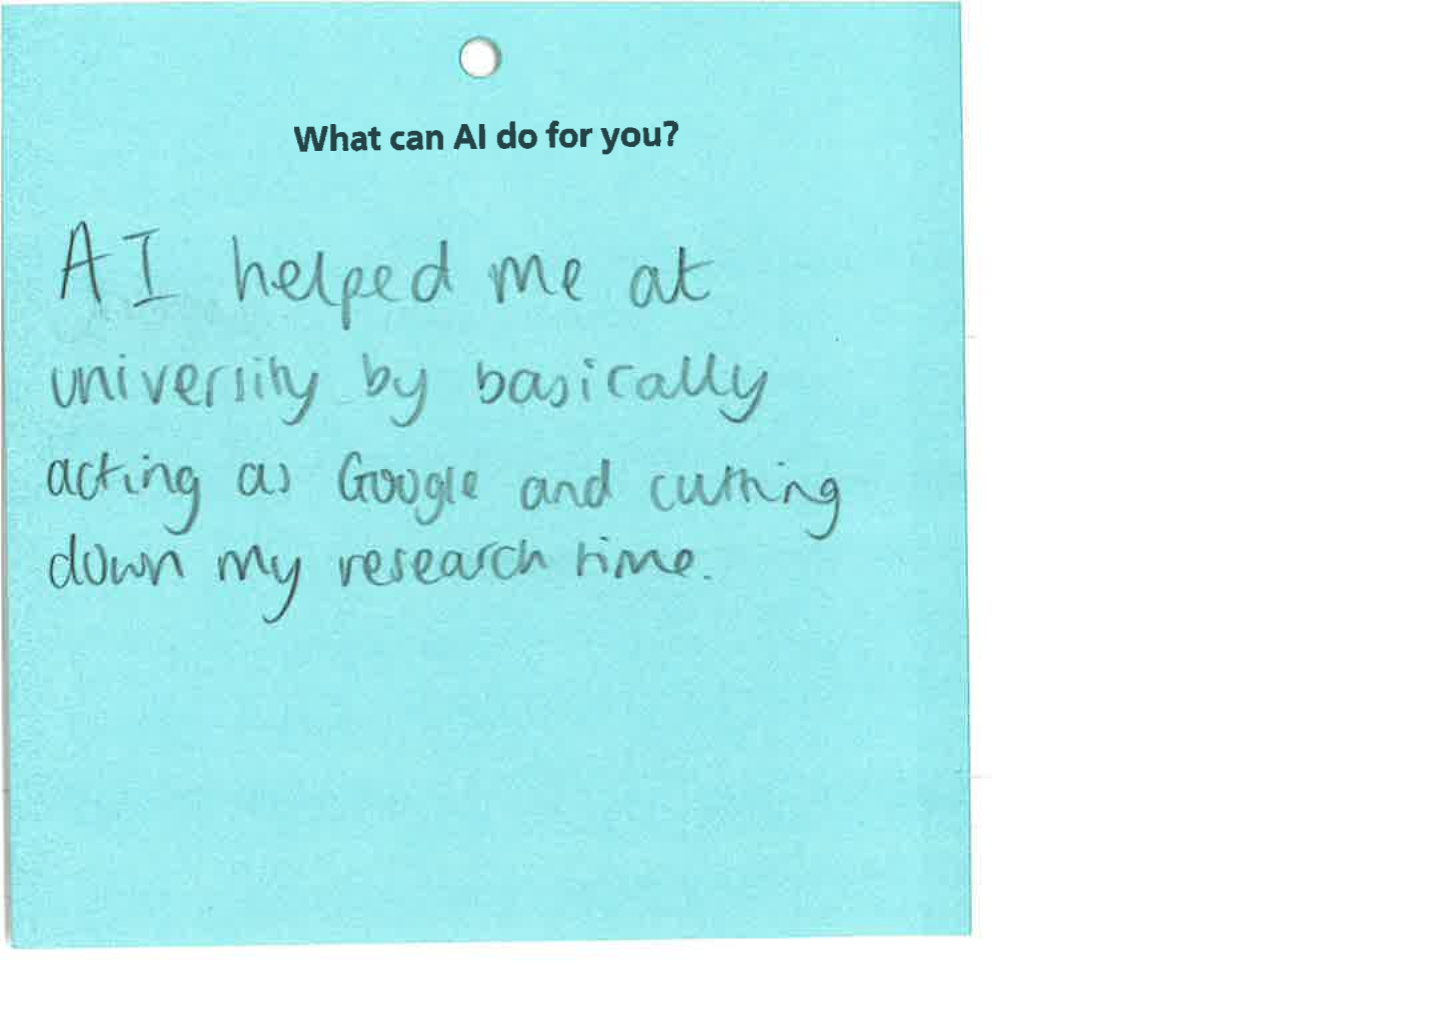 What can AI do for you?
AI helped me at
university by basically
acting as Google and cutting
down my research time.